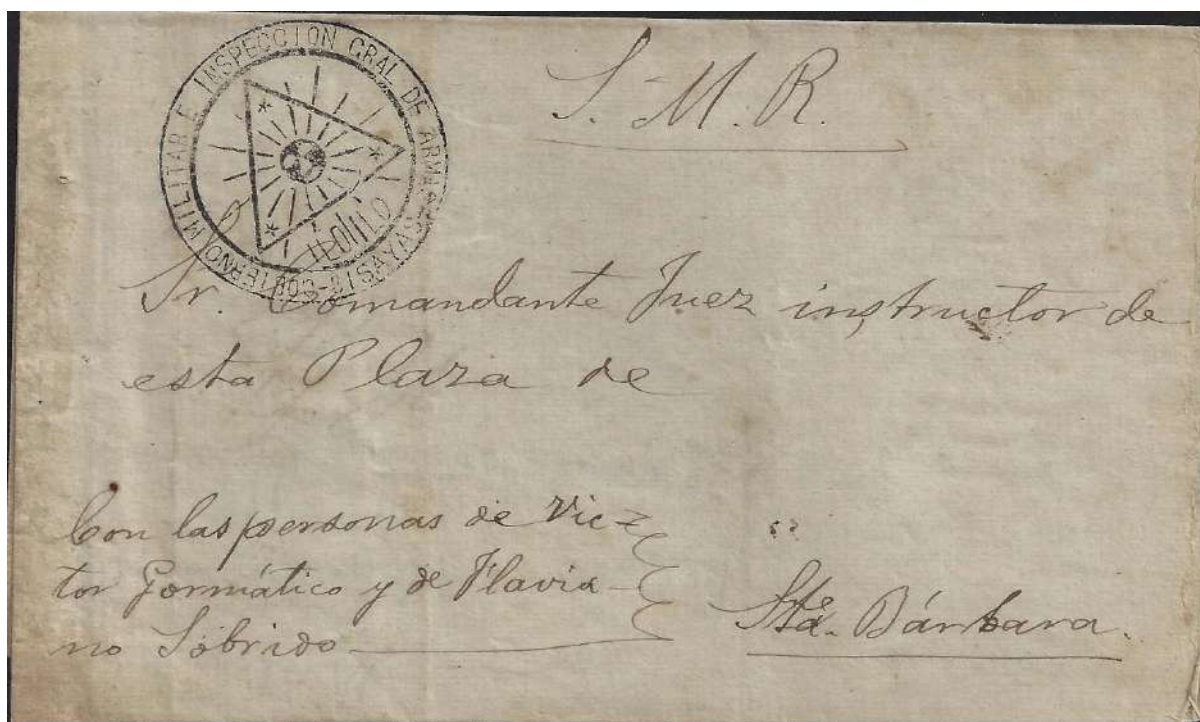 GOBIERNO MILITAR E INSPECCION GRAL DE ARMAS-BISAYAS-
ILOILO
S. M. R.
Sr. Comandante Juez instructor de
esta Plaza de
Con las personas de Vic-
tor Gormático y de Flavia-
no Sobrido
Sta. Bárbara.